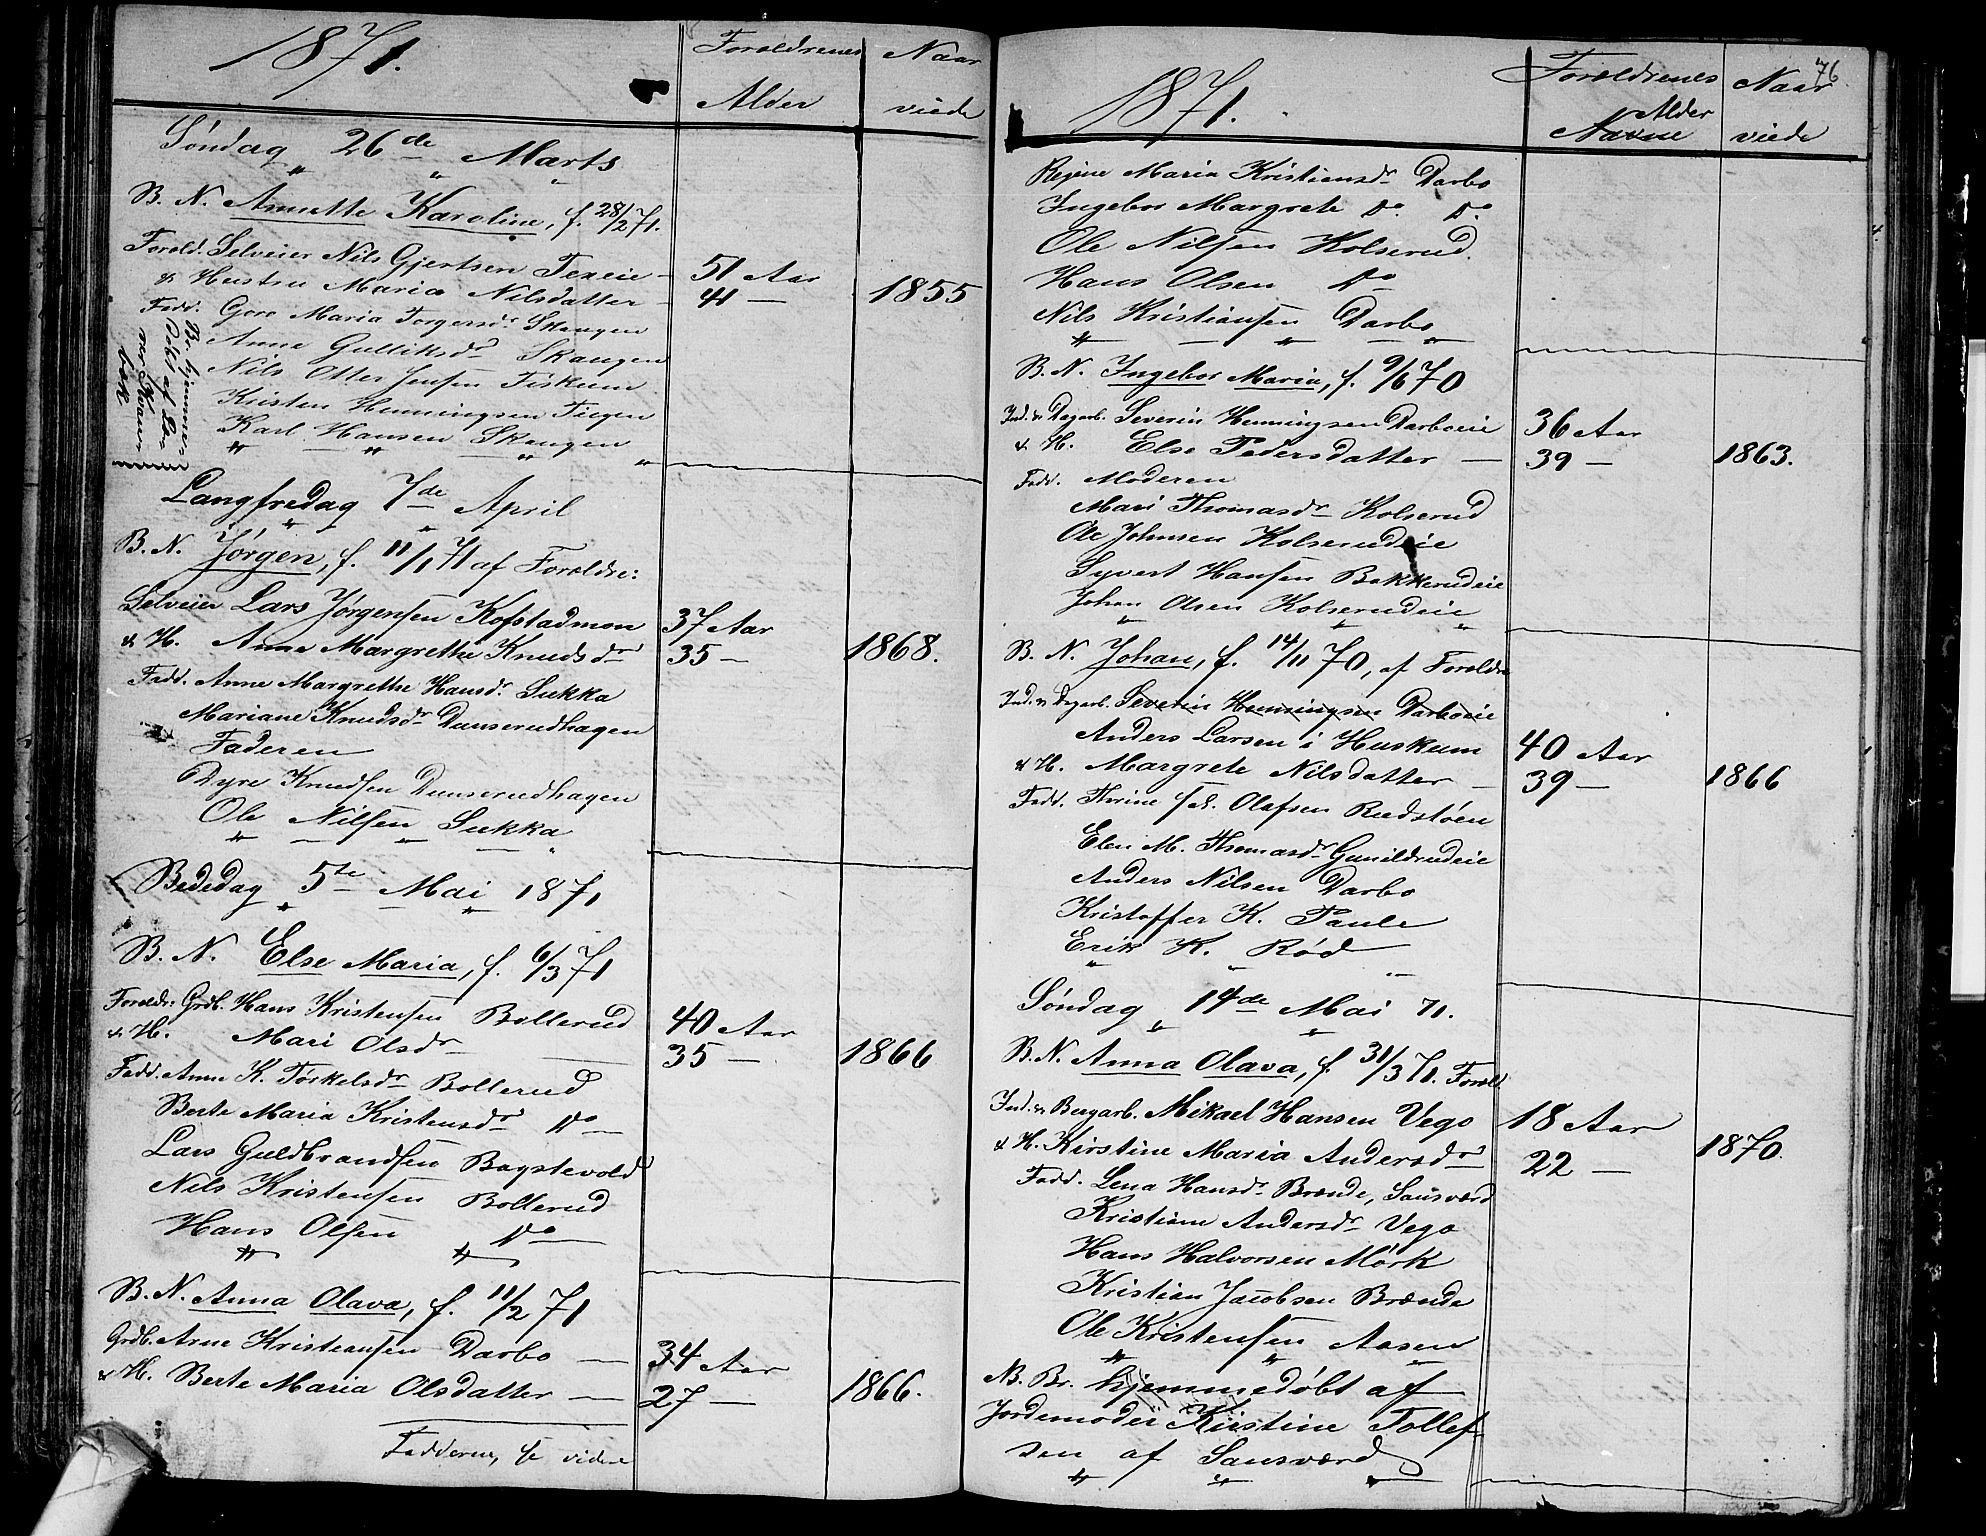 1871.
Forældrenes
Alder
Naar
viede
Søndag 26de Marts
B. N. Annette Karoline, f. 28/2 71.
Foræld. Selveier Nils Gjertsen Texeie — 51 Aar
& Hustru Maria Nilsdatter — 41 — 1855
Fadd. Goro Maria Torgersdr Skaugen
Anne Gulliksdr Skaugen
Nils Otter Jensen Fiskum
Kristen Henningsen Tiegen
Karl Hansen Skaugen
Br. hjemme-
døbt af
bøk.
Langfredag 7de April
B. N. Jørgen, f. 11/1 71 af Forældre:
Selveier Lars Jørgensen Kofstadmon 37 Aar
& H. Anne Margrethe Knudsdr 35 — 1868.
Fadd. Anne Margrethe Hansdr. Sukka
Mariane Knudsdr Dunserudhagen
Faderen
Dyre Knudsen Dunserudhagen
Ole Nilsen Sukka
Bededag 5te Mai 1871
B. N. Else Maria, f. 6/3 71
Forældr: Grdb. Hans Kristensen Bollerud 40 Aar
& H. Mari Olsdr 35 — 1866
Fadd. Anne K. Torkelsdr Bollerud
Berte Maria Kristensdr Do
Lars Guldbrandsen Bagstevold
Nils Kristensen Bollerud
Hans Olsen Do
B. N. Anna Olava, f. 11/2 71
Grdb. Arne Kristiansen Darbo — 34 Aar
& H. Berte Maria Olsdatter — 27 — 1866.
Fadderne, se videre
76
1871.
Forældrenes
Alder
Navne
Naar
viede
Rejine Maria Kristiansdr Darbo
Ingebor Margrete Do. Do
Ole Nilsen Kolserud.
Hans Olsen Do
Nils Kristiansen Darbo
B. N. Ingebor Maria, f. 9/6 70
Ind. & Dagarb. Severin Henningsen Darboeie 36 Aar
& H. Else Pedersdatter — 39 — 1863.
Fadd. Moderen
Mari Thomasdr Kolserud
Ole Johnsen Kolserudeie
Syvert Hansen Bakkerudeie
Johan Olsen Kolserudeie
B. N. Johan, f. 14/11 70, af Forældr
Ind. & Dagarb. Severin Henningsen Darboeie
Anders Larsen i Huskum 40 Aar
& H. Margrete Nilsdatter — 39 — 1866
Fadd. Thrine Olafsen Rudstøen
Elen M. Thomasdr Gunildrudeie
Anders Nilsen Darbo
Kristoffer K. Paule
Erik K. Rød
Søndag 14de Mai 71.
B. N. Anna Olava, f. 31/3 71. Foræld
Ind. & Bergarb. Mikael Hansen Vego 18 Aar
& H. Kirstine Maria Andersdr 22 — 1870.
Fadd. Lena Hansdr. Brænde, Sausværd
Kristiane Andersdr Vego
Hans Halvorsen Mörk
Kristian Jacobsen Brænde
Ole Kristensen Aasen
N. B. Br. hjemmedøbt af
Jordemoder Kirstine Tollef-
sen af Sausværd